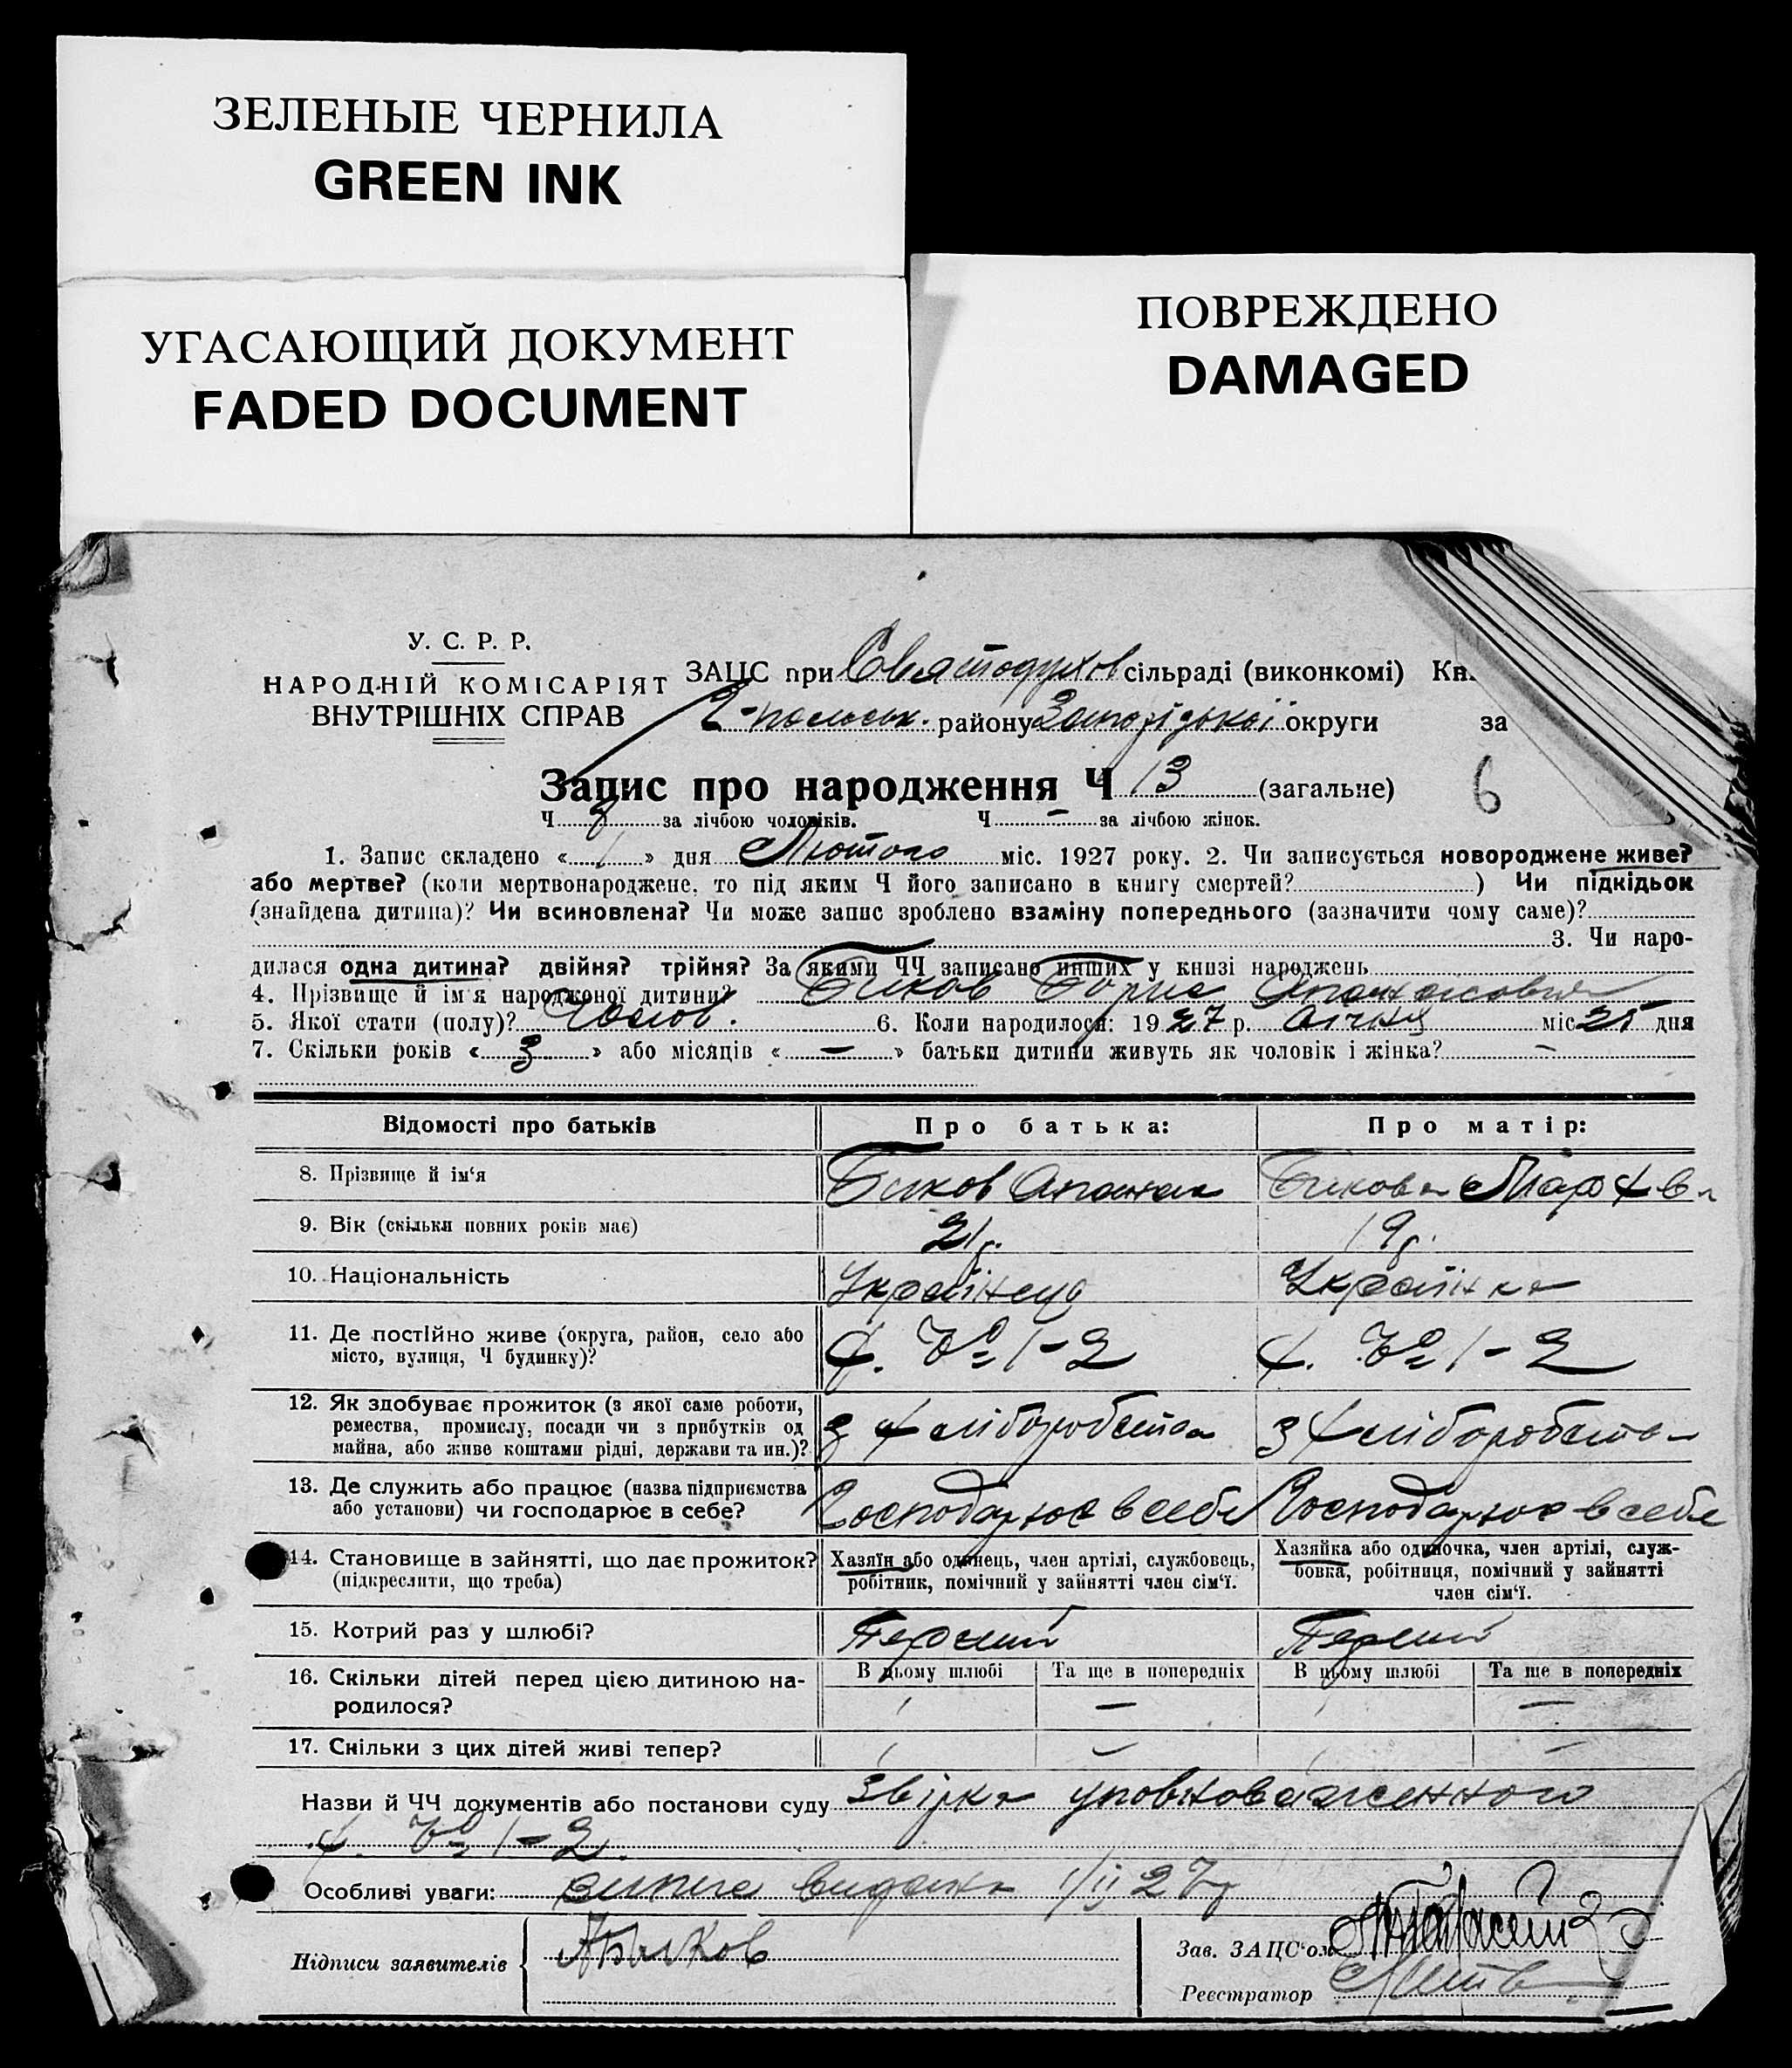 ЗЕЛЕНЫЕ ЧЕРНИЛА
GREEN INK
УГАСАЮЩИЙ ДОКУМЕНТ
FADED DOCUMENT
ПОВРЕЖДЕНО
DAMAGED
У. С. Р. Р.
НАРОДНІЙ КОМІСАРІЯТ
ВНУТРІШНІХ СПРАВ
ЗАЦС при Святодухов сільраді (виконкомі) Кн.
району Запорізької округи за
Запис про народження Ч 13 (загальне) 6
Ч 8 за лічбою чоловіків. Ч - за лічбою жінок.
1. Запис складено «1» дня Лютого міс. 1927 року. 2. Чи записується новороджене живе?
або мертве? (коли мертвонароджене, то під яким Ч його записано в книгу смертей? ) Чи підкідьок
(знайдена дитина)? Чи всиновлена? Чи може запис зроблено взаміну попереднього (зазначити чому саме)?
3. Чи наро-
дилася одна дитина? двійня? трійня? За якими ЧЧ записано инших у книзі народжень
4. Прізвище й ім'я народженої дитини? Биков Борис Опанасович
5. Якої стати (полу)? Чолов. 6. Коли народилося: 1927 р. січня міс 25 дня
7. Скільки років «3» або місяців «—» батьки дитини живуть як чоловік і жінка? -
Відомості про батьків
Про батька:
Про матір:
8. Прізвище й ім'я Биков Опанас Бикова Марфа
9. Вік (скільки повних років має) 21р. 19р.
10. Національність Українець Українка
11. Де постійно живе (округа, район, село або
місто, вулиця, Ч будинку)? х. № 1-2 х. № 1-2
12. Як здобуває прожиток (з якої саме роботи,
ремества, промислу, посади чи з прибутків од
майна, або живе коштами рідні, держави та ин.)? з хліборобства з хліборобства
13. Де служить або працює (назва підприємства
або установи) чи господарює в себе? Господарює в себе Господарює в себе
14. Становище в зайнятті, що дає прожиток?
(підкреслити, що треба)
Хазяїн або одинець, член артілі, службовець,
робітник, помічний у зайнятті член сім'ї.
Хазяйка або одиночка, член артілі, служ-
бовка, робітниця, помічний у зайнятті
член сім'ї.
15. Котрий раз у шлюбі? Перший Перший
16. Скільки дітей перед цією дитиною на-
родилося?
В цьому шлюбі Та ще в попередніх В цьому шлюбі Та ще в попередніх
1 — 1 —
17. Скільки з цих дітей живі тепер? 1 — 1 —
Назви й ЧЧ документів або постанови суду Звірка уповноваженного
х. № 1-2.
Особливі уваги: випис видана 1/II 27р
Підписи заявителів АБыков
Зав. ЗАЦС'ом
Реєстратор